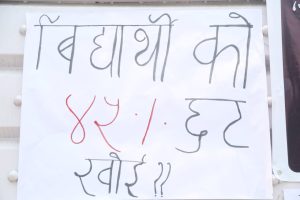 बिद्यार्थी को
४५% छुट
खोई !!